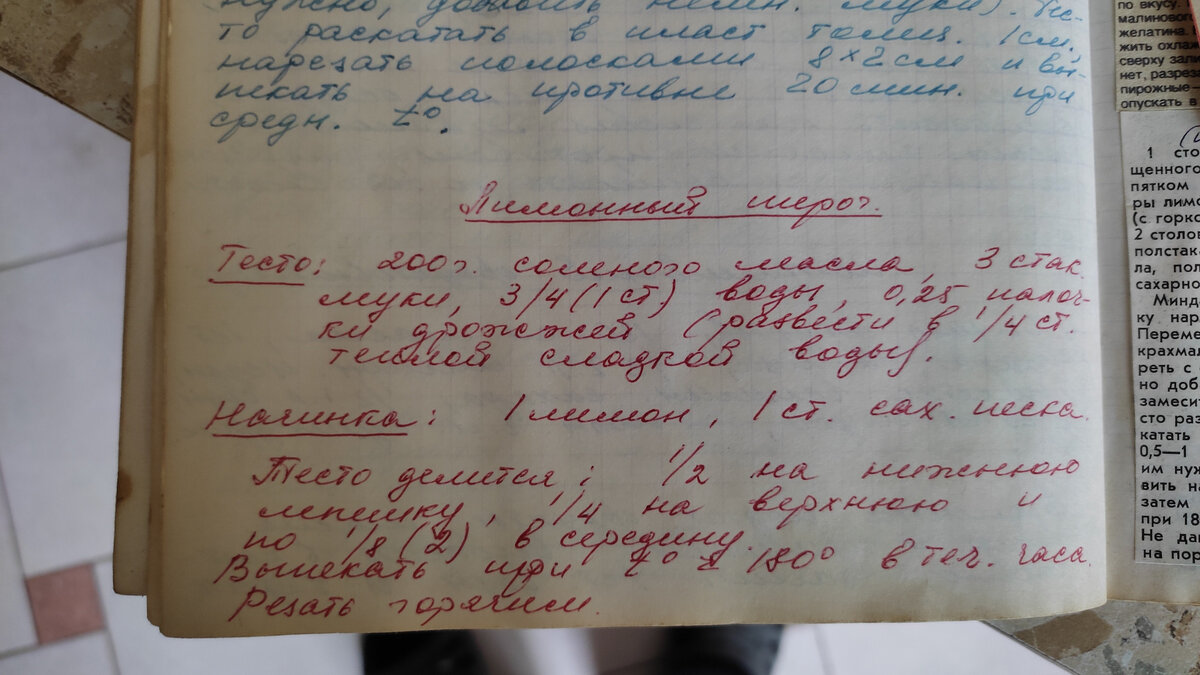 нужно, добавить немн. муки). Те-
то раскатать в пласт толщ. 1см,
нарезать полосками 8×2см и вы-
пекать на противне 20 мин. при
средн. t°.
Лимонный пирог.
Тесто: 200г. соленого масла, 3 стак.
муки, 3/4 (1 ст) воды, 0,25 палоч-
ки дрожжей (развести в 1/4 ст.
теплой сладкой воды).
Начинка: 1 лимон, 1 ст. сах. песка.
Тесто делится: 1/2 на нижнюю
лепешку, 1/4 на верхнюю и
по 1/8 (2) в середину.
Выпекать при t° ± 180° в теч. часа.
Резать горячим.
по вкусу.
малинового
желатина.
жить охла
сверху зали
нет, разрез
пирожные—
опускать в
1 сто
щенного
пятком
ры лимо
(с горко
2 столов
полстака
ла, пол
сахарно
Минд
ку нар
Переме
крахмал
реть с
но доб
замесит
сто раз
катать
0,5—1
им нуж
вить на
затем
при 18
Не да
на пор